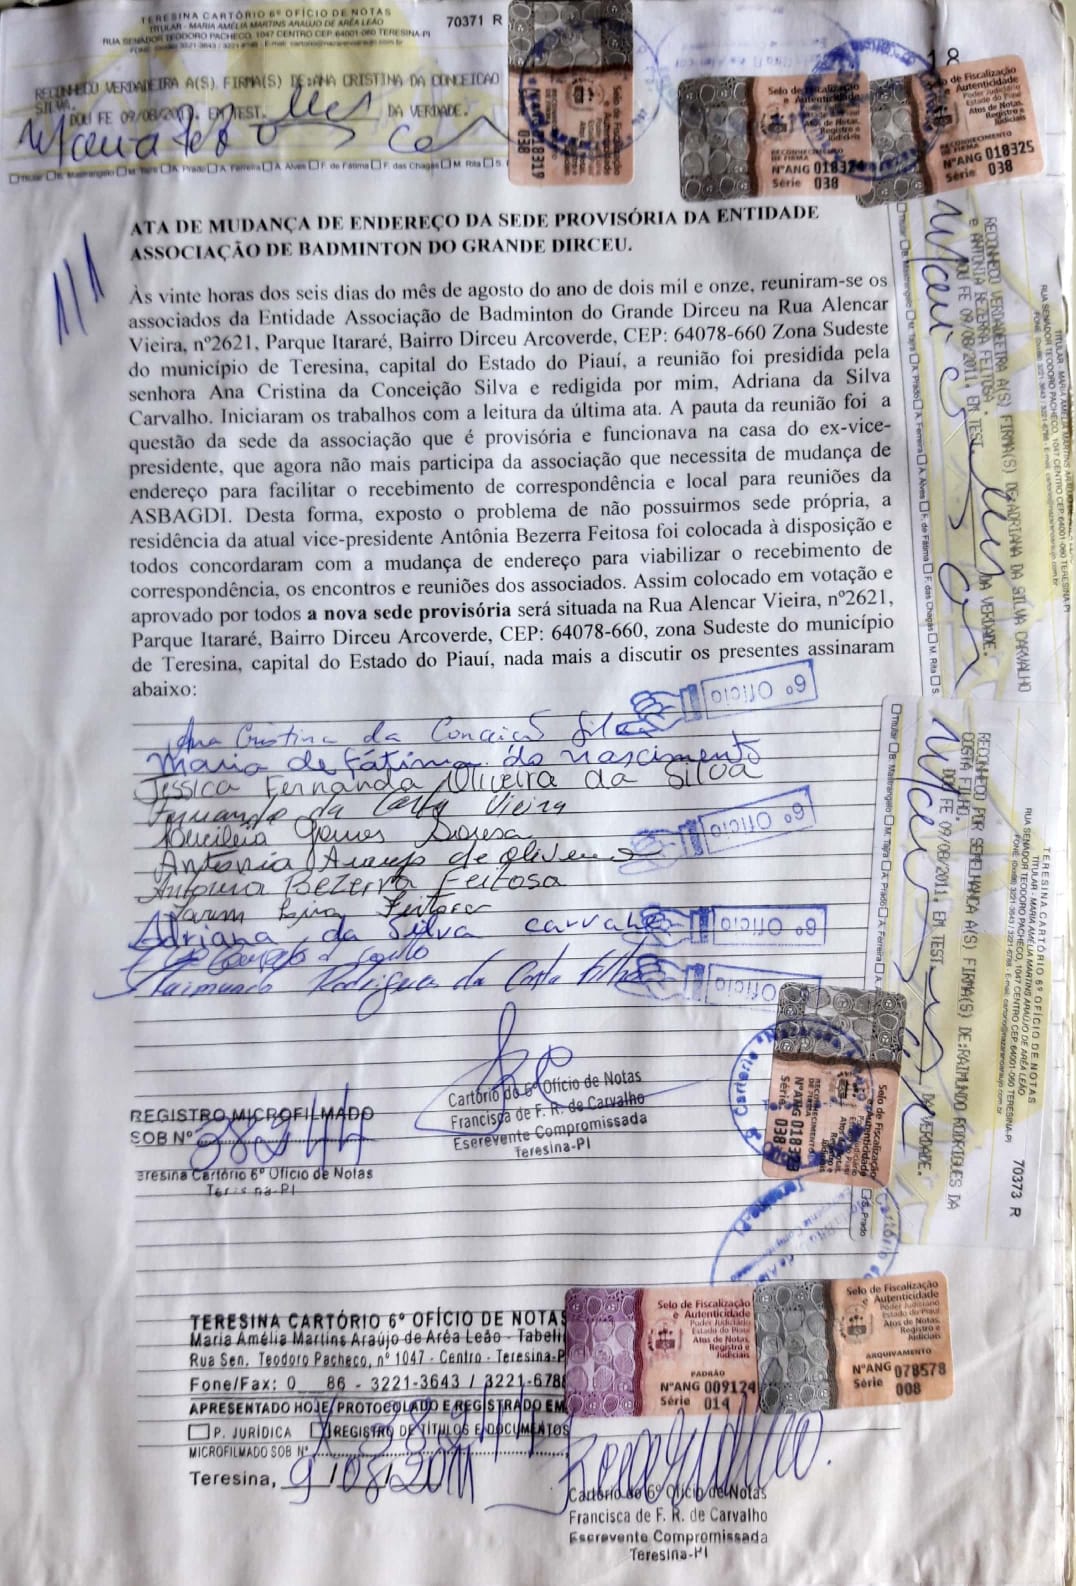 TERESINA CARTÓRIO 6º OFÍCIO DE NOTAS
TITULAR - MARIA AMÉLIA MARTINS ARAÚJO DE ARÊA LEÃO
RUA SENADOR TEODORO PACHECO, 1047 CENTRO CEP 64001-060 TERESINA-PI
70371 R
RECONHEÇO VERDADEIRA A(S) FIRMA(S) DE:ANA CRISTINA DA CONCEICAO
SILVA.
DOU FE 09/08/2011. EM TEST. DA VERDADE.
Selo de Fiscalização
Autenticidade
Poder Judiciário
Estado do Piauí
Atos de Notas,
Registro e
Judiciais
RECONHECIMENTO
DE FIRMA
NºANG 018324
Série 038
Selo de Fiscalização
Autenticidade
Poder Judiciário
Estado do Piauí
Atos de Notas,
Registro e
Judiciais
RECONHECIMENTO
DE FIRMA
NºANG 018325
Série 038
ATA DE MUDANÇA DE ENDEREÇO DA SEDE PROVISÓRIA DA ENTIDADE
ASSOCIAÇÃO DE BADMINTON DO GRANDE DIRCEU.
Às vinte horas dos seis dias do mês de agosto do ano de dois mil e onze, reuniram-se os
associados da Entidade Associação de Badminton do Grande Dirceu na Rua Alencar
Vieira, nº2621, Parque Itararé, Bairro Dirceu Arcoverde, CEP: 64078-660 Zona Sudeste
do município de Teresina, capital do Estado do Piauí, a reunião foi presidida pela
senhora Ana Cristina da Conceição Silva e redigida por mim, Adriana da Silva
Carvalho. Iniciaram os trabalhos com a leitura da última ata. A pauta da reunião foi a
questão da sede da associação que é provisória e funcionava na casa do ex-vice-
presidente, que agora não mais participa da associação que necessita de mudança de
endereço para facilitar o recebimento de correspondência e local para reuniões da
ASBAGDI. Desta forma, exposto o problema de não possuirmos sede própria, a
residência da atual vice-presidente Antônia Bezerra Feitosa foi colocada à disposição e
todos concordaram com a mudança de endereço para viabilizar o recebimento de
correspondência, os encontros e reuniões dos associados. Assim colocado em votação e
aprovado por todos a nova sede provisória será situada na Rua Alencar Vieira, nº2621,
Parque Itararé, Bairro Dirceu Arcoverde, CEP: 64078-660, zona Sudeste do município
de Teresina, capital do Estado do Piauí, nada mais a discutir os presentes assinaram
abaixo:
6º Ofício
Ana Cristina da Conceição Silva
Maria de Fátima do nascimento
Jessica Fernanda Oliveira da Silva
Fernando da Costa Vieira
6º Ofício
Antonia Araujo de Oliveira
Antonia Bezerra Feitosa
Feitosa
Adriana da Silva carvalho
6º Ofício
Raimundo Rodrigues da Costa Filho
6º Ofício
RECONHEÇO VERDADEIRA A(S) FIRMA(S) DE:ADRIANA DA SILVA CARVALHO
e ANTONIA BEZERRA FEITOSA.
DOU FE 09/08/2011. EM TEST. DA VERDADE.
TERESINA CARTÓRIO 6º OFÍCIO DE NOTAS
TITULAR - MARIA AMÉLIA MARTINS ARAÚJO DE ARÊA LEÃO
RUA SENADOR TEODORO PACHECO, 1047 CENTRO CEP 64001-060 TERESINA-PI
70373 R
RECONHEÇO POR SEMELHANCA A(S) FIRMA(S) DE:RAIMUNDO RODRIGUES DA
COSTA FILHO.
DOU FE 09/08/2011. EM TEST. DA VERDADE.
Cartório do 6º Ofício de Notas
Francisca de F. R. de Carvalho
Escrevente Compromissada
Teresina-PI
REGISTRO MICROFILMADO
SOB Nº 38244
Teresina Cartório 6º Ofício de Notas
Teresina-PI
TERESINA CARTÓRIO 6º OFÍCIO DE NOTAS
Maria Amélia Martins Araújo de Arêa Leão - Tabeli
Rua Sen. Teodoro Pacheco, nº 1047 - Centro - Teresina-P
Fone/Fax: 0 86 - 3221-3643 / 3221-6788
APRESENTADO HOJE, PROTOCOLADO E REGISTRADO EM
P. JURÍDICA REGISTRO DE TÍTULOS E DOCUMENTOS
MICROFILMADO SOB Nº
Teresina, 9/08/2011
Selo de Fiscalização
e Autenticidade
Poder Judiciário
Estado do Piauí
Atos de Notas,
Registro e
Judiciais
PADRÃO
NºANG 009124
Série 014
Selo de Fiscalização
e Autenticidade
Poder Judiciário
Estado do Piauí
Atos de Notas,
Registro e
Judiciais
ARQUIVAMENTO
NºANG 078578
Série 008
Cartório do 6º Ofício de Notas
Francisca de F. R. de Carvalho
Escrevente Compromissada
Teresina-PI